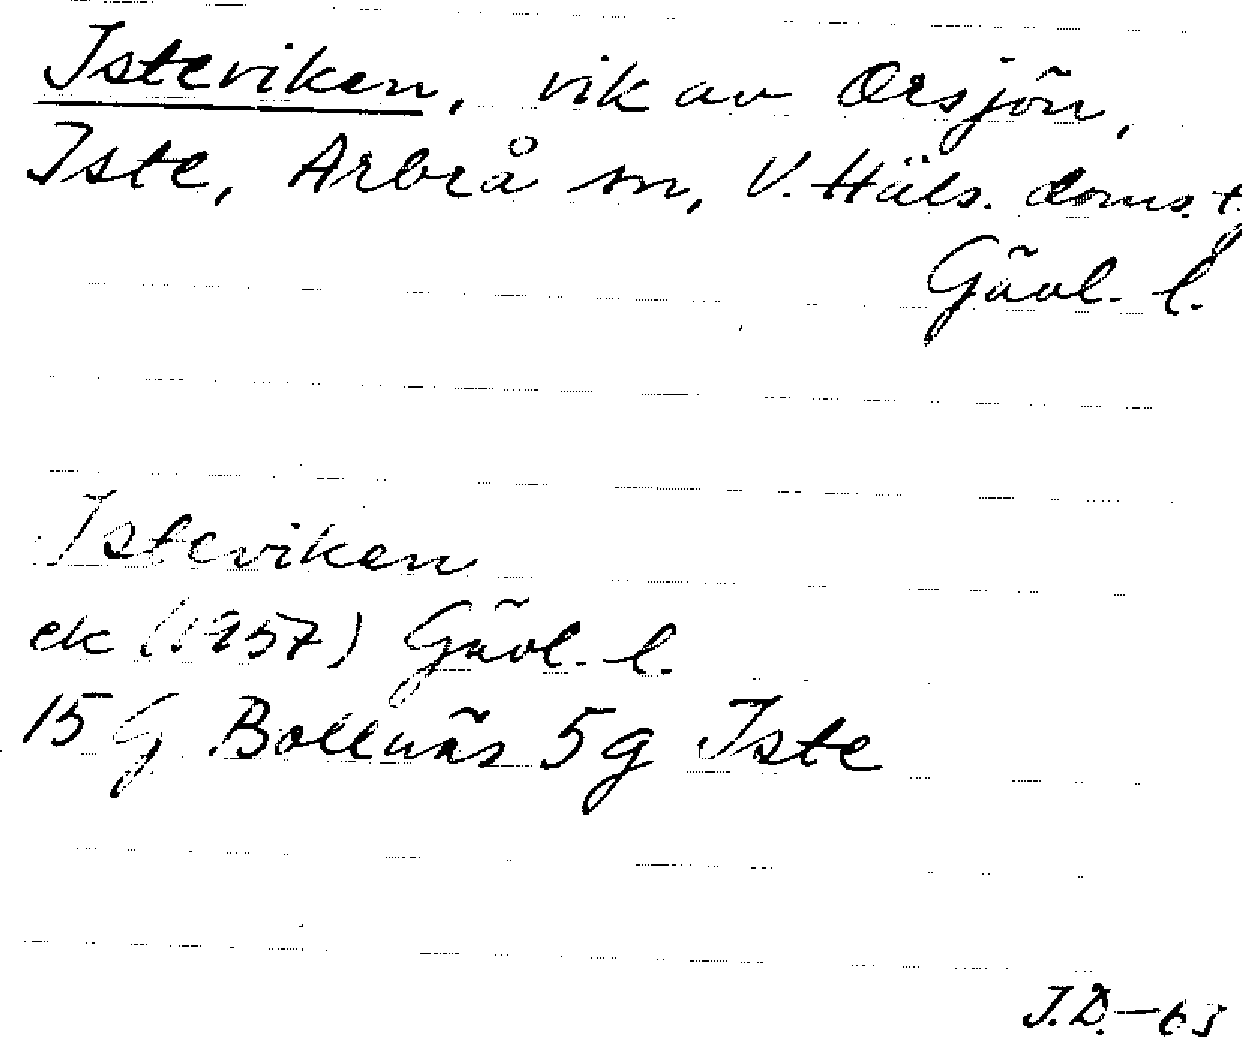 Isteviken, vik av Orsjön,
Iste, Arbrå sn, V. Häls. doms.
Gävl. l.
Isteviken
ek (1957) Gävl. l.
15 G Bollnäs 5g Iste